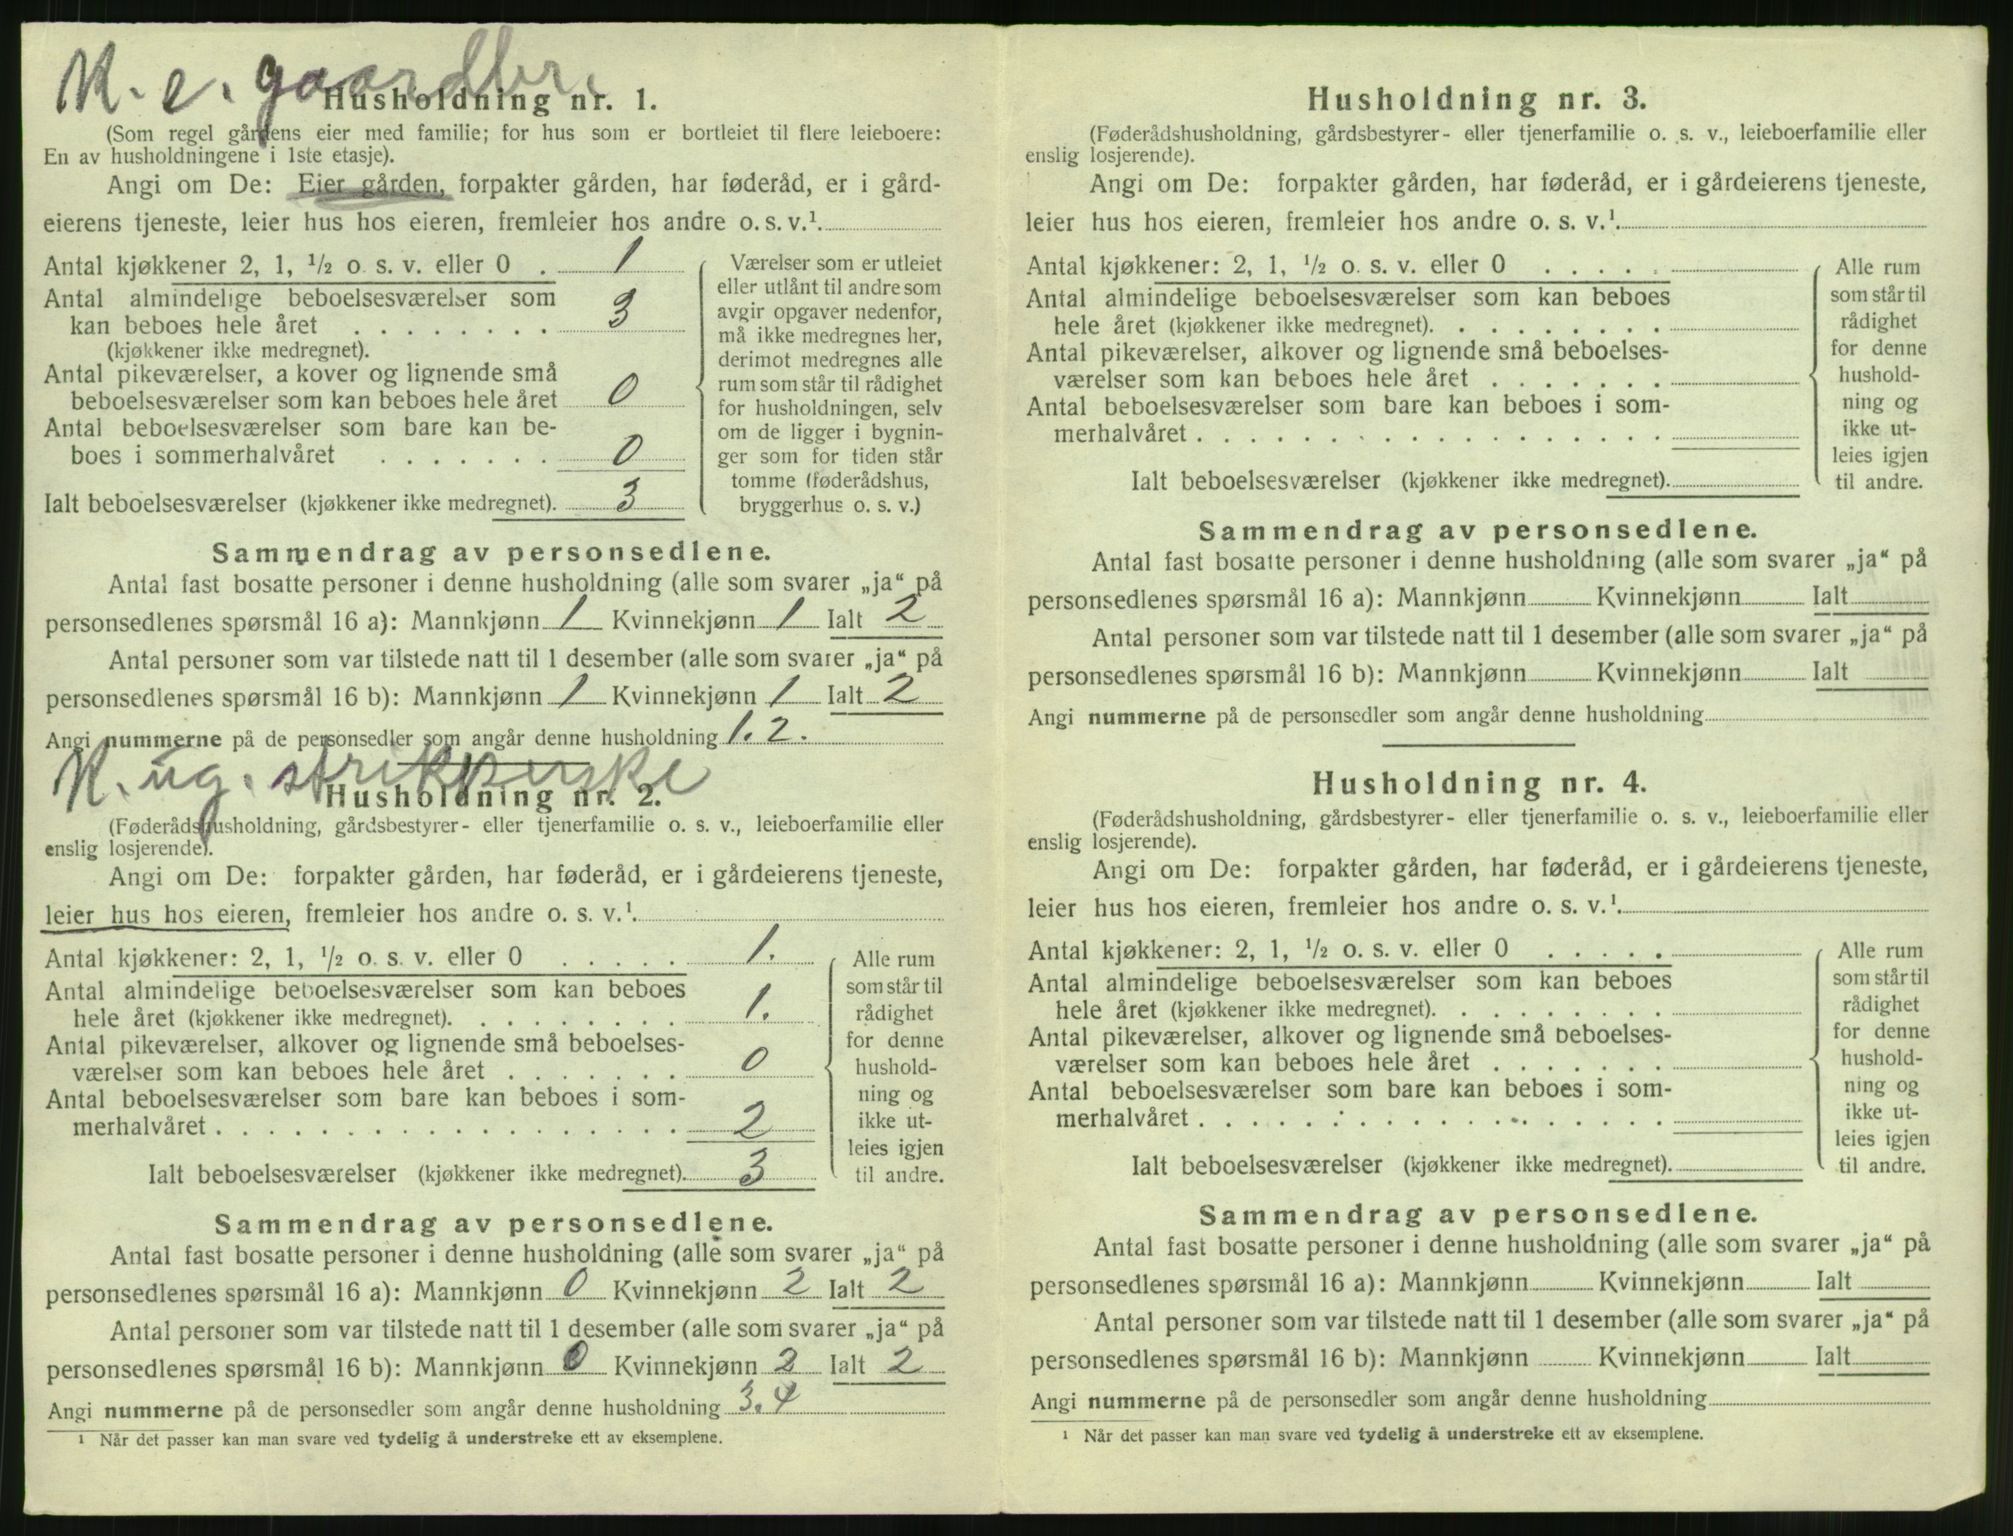 K. e. gaardbr.
Husholdning nr. 1.
(Som regel gårdens eier med familie; for hus som er bortleiet til flere leieboere:
En av husholdningene i 1ste etasje).
Angi om De: Eier gården, forpakter gården, har føderåd, er i gård-
eierens tjeneste, leier hus hos eieren, fremleier hos andre o. s. v.¹.
Antal kjøkkener 2, 1, ½ o. s. v. eller 0 . 1
Antal almindelige beboelsesværelser som
kan beboes hele året . . . . . . . . 3
(kjøkkener ikke medregnet).
Antal pikeværelser, a kover og lignende små
beboelsesværelser som kan beboes hele året 0
Antal beboelsesværelser som bare kan be-
boes i sommerhalvåret . . . . . . . 0
Ialt beboelsesværelser (kjøkkener ikke medregnet). 3
Værelser som er utleiet
eller utlånt til andre som
avgir opgaver nedenfor,
må ikke medregnes her,
derimot medregnes alle
rum som står til rådighet
for husholdningen, selv
om de ligger i bygnin-
ger som for tiden står
tomme (føderådshus,
bryggerhus o. s. v.)
Sammendrag av personsedlene.
Antal fast bosatte personer i denne husholdning (alle som svarer „ja“ på
personsedlenes spørsmål 16 a): Mannkjønn 1 Kvinnekjønn 1 Ialt 2
Antal personer som var tilstede natt til 1 desember (alle som svarer „ja“ på
personsedlenes spørsmål 16 b): Mannkjønn 1 Kvinnekjønn 1 Ialt 2
Angi nummerne på de personsedler som angår denne husholdning 1.2.
K. ug. strikkerske
Husholdning nr. 2.
(Føderådshusholdning, gårdsbestyrer- eller tjenerfamilie o. s. v., leieboerfamilie eller
enslig losjerende).
Angi om De: forpakter gården, har føderåd, er i gårdeierens tjeneste,
leier hus hos eieren, fremleier hos andre o. s. v.¹.
Antal kjøkkener: 2, 1, ½ o. s. v. eller 0 . . . . . 1.
Antal almindelige beboelsesværelser som kan beboes
hele året (kjøkkener ikke medregnet). . . . . . . . 1.
Antal pikeværelser, alkover og lignende små beboelses-
værelser som kan beboes hele året . . . . . . . 0
Antal beboelsesværelser som bare kan beboes i som-
merhalvåret . . . . . . . . . . . . . . . . . . 2
Ialt beboelsesværelser (kjøkkener ikke medregnet). 3
Alle rum
som står til
rådighet
for denne
hushold-
ning og
ikke ut-
leies igjen
til andre.
Sammendrag av personsedlene.
Antal fast bosatte personer i denne husholdning (alle som svarer „ja“ på
personsedlenes spørsmål 16 a): Mannkjønn 0 Kvinnekjønn 2 Ialt 2
Antal personer som var tilstede natt til 1 desember (alle som svarer „ja“ på
personsedlenes spørsmål 16 b): Mannkjønn 0 Kvinnekjønn 2 Ialt 2
Angi nummerne på de personsedler som angår denne husholdning 3.4
¹ Når det passer kan man svare ved tydelig å understreke ett av eksemplene.
Husholdning nr. 3.
(Føderådshusholdning, gårdsbestyrer- eller tjenerfamilie o. s. v., leieboerfamilie eller
enslig losjerende).
Angi om De: forpakter gården, har føderåd, er i gårdeierens tjeneste,
leier hus hos eieren, fremleier hos andre o. s. v.¹.
Antal kjøkkener: 2, 1, ½ o. s. v. eller 0 . . . . .
Antal almindelige beboelsesværelser som kan beboes
hele året (kjøkkener ikke medregnet). . . . . . . .
Antal pikeværelser, alkover og lignende små beboelses-
værelser som kan beboes hele året . . . . . . .
Antal beboelsesværelser som bare kan beboes i som-
merhalvåret . . . . . . . . . . . . . . . . . .
Ialt beboelsesværelser (kjøkkener ikke medregnet).
Alle rum
som står til
rådighet
for denne
hushold-
ning og
ikke ut-
leies igjen
til andre.
Sammendrag av personsedlene.
Antal fast bosatte personer i denne husholdning (alle som svarer „ja“ på
personsedlenes spørsmål 16 a): Mannkjønn Kvinnekjønn Ialt
Antal personer som var tilstede natt til 1 desember (alle som svarer „ja“ på
personsedlenes spørsmål 16 b): Mannkjønn Kvinnekjønn Ialt
Angi nummerne på de personsedler som angår denne husholdning
Husholdning nr. 4.
(Føderådshusholdning, gårdsbestyrer- eller tjenerfamilie o. s. v., leieboerfamilie eller
enslig losjerende).
Angi om De: forpakter gården, har føderåd, er i gårdeierens tjeneste,
leier hus hos eieren, fremleier hos andre o. s. v.¹.
Antal kjøkkener: 2, 1, ½ o. s. v. eller 0 . . . . .
Antal almindelige beboelsesværelser som kan beboes
hele året (kjøkkener ikke medregnet). . . . . . . .
Antal pikeværelser, alkover og lignende små beboelses-
værelser som kan beboes hele året . . . . . . .
Antal beboelsesværelser som bare kan beboes i som-
merhalvåret . . . . . . . . . . . . . . . . . .
Ialt beboelsesværelser (kjøkkener ikke medregnet).
Alle rum
som står til
rådighet
for denne
hushold-
ning og
ikke ut-
leies igjen
til andre.
Sammendrag av personsedlene.
Antal fast bosatte personer i denne husholdning (alle som svarer „ja“ på
personsedlenes spørsmål 16 a): Mannkjønn Kvinnekjønn Ialt
Antal personer som var tilstede natt til 1 desember (alle som svarer „ja“ på
personsedlenes spørsmål 16 b): Mannkjønn Kvinnekjønn Ialt
Angi nummerne på de personsedler som angår denne husholdning
¹ Når det passer kan man svare ved tydelig å understreke ett av eksemplene.